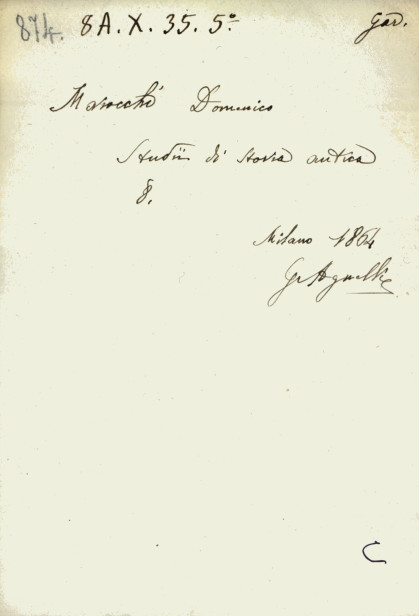 874. 8 A. X. 35. 5.° Gar.
Marocchi Domenico
Studii di storia antica
8.
Milano 1864
G. Agnelli
C